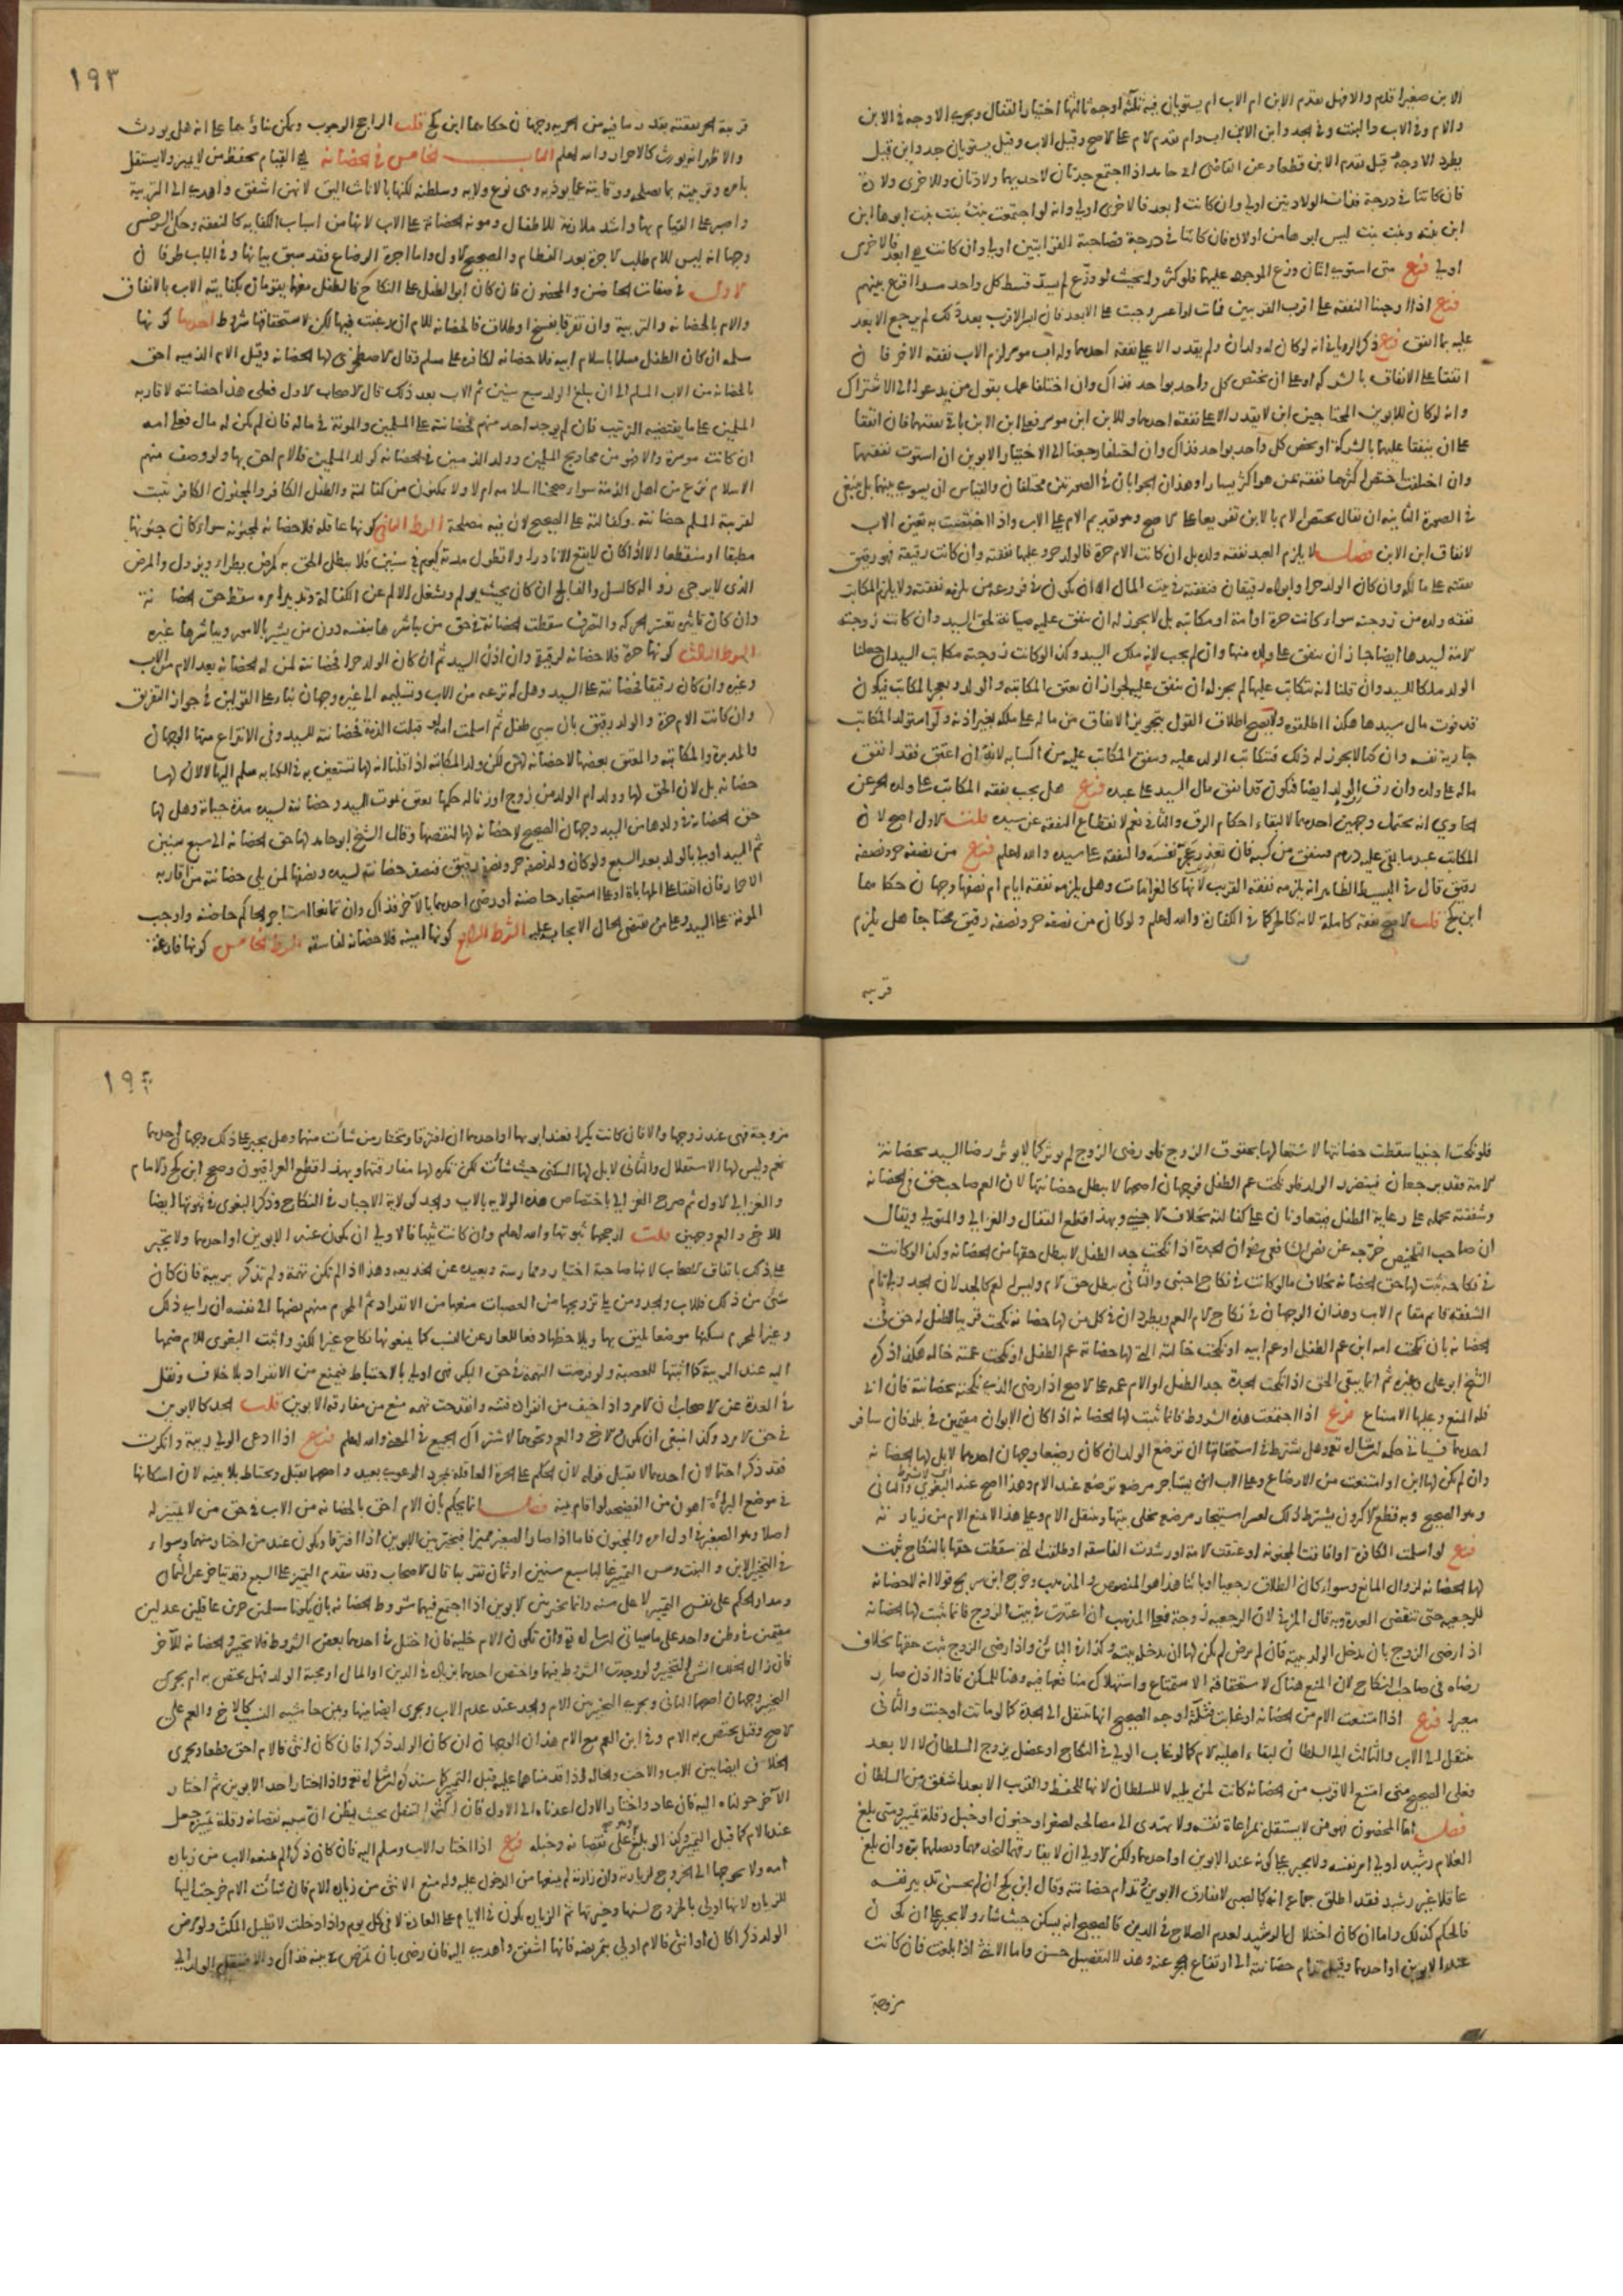 الابن صغيرا قدم والا فهل يقدم الابن ام الاب ام يستويان فيه ثلاثة اوجه ثالثها اختيار القفال ويجري الاوجه في الابن
والام وفي الاب والبنت وفي الجد وابن الابن اب وام تقدم الام على الاصح وقيل الاب وقيل يستويان جد وابن قيل
يطرد الاوجه وقيل يقدم الابن قطعا وعن القاضي ابي حامد اذا اجتمع جدتان لاحديهما ولادتان وللاخرى ولادة
فان كانتا في درجة فذات الولادتين اولى وان كانت ابعد فالاخرى اولى وانه لو اجتمعت بنت بنت بنت ابوها ابن
ابن بنته وبنت بنت ليس ابوها من اولاده فان كانتا في درجة فصاحبة القرابتين اولى وان كانت هي ابعد فالاخرى
اولى فرع متى استوى اثنان وزع الموجب عليهما فلو كثروا بحيث لو وزع لم يسد قسط كل واحد مسدا اقرع بينهم
فرع اذا اوجبنا النفقة على اقرب القريبين فمات او اعسر وجبت على الابعد فان ايسر الاقرب بعد ذلك لم يرجع الابعد
عليه بما انفق فرع ذكر الروياني انه لو كان له ولدان ولم يقدر الا على نفقة احدهما وله اب موسر لزم الاب نفقة الاخر فان
اتفقا على الانفاق بالشركة او على ان يختص كل واحد بواحد فذاك وان اختلفا عمل بقول من يدعو الى الاشتراك
وانه لو كان للابوين المحتاجين ابن لا يقدر الا على نفقة احدهما وللابن ابن موسر فعلى ابن الابن باقي نفقتهما فان اتفقا
على ان ينفقا عليهما بالشركة او يخص كل واحد بواحد فذاك وان اختلفا رجعنا الى اختيار الابوين ان استوت نفقتهما
وان اختلفت اختص اكثرهما نفقة بمن هو اكثر يسارا وهذان الجوابان في الصورتين مختلفان والقياس ان يسوي بينهما بل ينبغي
في الصورة الثانية ان يقال يختص الام بالابن تفريعا على الاصح وهو تقديم الام على الاب واذا اختصت به تعين الاب
لانفاق ابن الابن فصل لا يلزم العبد نفقة ولده بل ان كانت الام حرة فالولد حر وعليها نفقته وان كانت رقيقة فهو رقيق
نفقته على مالكه وان كان الولد حرا وابواه رقيقان فنفقته في بيت المال الا ان يكون في فروعه من يلزمه نفقته ولا يلزم المكاتب
نفقة ولده من زوجته سواء كانت حرة او امة او مكاتبة بل لا يجوز له ان ينفق عليه صيانة لحق السيد وان كانت زوجته
الامة لسيدها ايضا جاز ان ينفق على ولده منها وان لم يجب لانه ملك السيد وكذا لو كانت زوجته مكاتب السيد ان جعلنا
الولد ملكا للسيد وان قلنا انه يتكاتب عليها لم يجز له ان ينفق عليه لجواز ان تعتق المكاتبة والولد ويعجز المكاتب فيكون
قد فوت مال سيدها هكذا اطلقوه ولا يصح اطلاق القول بتجويز الانفاق من ماله على ملكه بغير اذنه ولو استولد المكاتب
جارية نفسه وان كنا لا نجوز له ذلك فيتكاتب الولد عليه وينفق المكاتب عليه من اكسابه لانه ان اعتق فقد انفق
ماله على ولده وان رق رق الولد ايضا فيكون قد انفق مال السيد على عبده فرع هل يجب نفقة المكاتب على ولده الحر عن
الحاوي انه يحتمل وجهين احدهما لا لبقاء احكام الرق والثاني نعم لانقطاع النفقة عن سيده قلت الاول اصح لان
المكاتب عبد ما بقي عليه درهم فينفق من كسبه فان تعذر عجز نفسه والنفقة على سيده والله اعلم فرع من نصفه حر ونصفه
رقيق قال في البسيط الظاهر انه يلزمه نفقة القريب لانها كالغرامات وهل يلزمه نفقة تامة ام نصفها وجهان حكاهما
ابن كج قلت الاصح نفقة كاملة لانه كالحر كما في الكفارة والله اعلم ولو كان من نصفه حر ونصفه رقيق محتاجا هل يلزم
قريبه
١٩٣
قريبه الحر نفقته بقدر ما فيه من الحرية وجهان حكاهما ابن كج قلت الراجح الوجوب ويمكن بناؤهما على انه هل يورث
والاظهر انه يورث كالاحرار والله اعلم الباب الخامس في الحضانة هي القيام بحفظ من لا يميز ولا يستقل
بامره وتربيته بما يصلحه ووقايته عما يوذيه وهي نوع ولاية وسلطنة لكنها بالاناث اليق لانهن اشفق واهدى الى التربية
واصبر على القيام بها واشد ملازمة للاطفال ومونة الحضانة على الاب لانها من اسباب الكفاية كالنفقة وحكى السرخسي
وجها انه ليس للام طلب الاجرة بعد الفطام والصحيح الاول واما اجرة الرضاع فقد سبق بيانها وفي الباب طرفان
الاول في صفات الحاضن والمحضون فان كان ابوا الطفل على النكاح فالطفل معهما يقومان بكفايته الاب بالانفاق
والام بالحضانة والتربية وان تفرقا بفسخ او طلاق فالحضانة للام ان رغبت فيها لكن لاستحقاقها شروط احدها كونها
مسلمة ان كان الطفل مسلما باسلام ابيه فلا حضانة لكافرة على مسلم وقال الاصطخري لها الحضانة وقيل الام الذمية احق
بالحضانة من الاب المسلم الى ان يبلغ الولد سبع سنين ثم الاب بعد ذلك قال الاصحاب الاول فعلى هذا حضانته لاقاربه
المسلمين على ما يقتضيه الترتيب فان لم يوجد احد منهم فحضانته على المسلمين والمونة في ماله فان لم يكن له مال فعلى امه
ان كانت موسرة والا فهو من محاويج المسلمين وولد الذميين في الحضانة كولد المسلمين فالام احق بها ولو وصف منهم
الاسلام نزع من اهل الذمة سواء صححنا اسلامه ام لا ولا يمكنون من كفالته والطفل الكافر والمجنون الكافر تثبت
لقريبه المسلم حضانته وكفالته على الصحيح لان فيه مصلحة الشرط الثاني كونها عاقلة فلا حضانة لمجنونة سواء كان جنونها
مطبقا او منقطعا الا اذا كان لا يقع الا نادرا ولا تطول مدته كيوم في سنين فلا يبطل الحق به كمرض يطرا ويزول والمرض
الذي لا يرجى زواله كالسل والفالج ان كان بحيث يولم ويشغل الالم عن الكفالة وتدبير امره سقط حق الحضانة
وان كان تاثيره تعسر الحركة والتصرف سقطت الحضانة في حق من يباشرها بنفسه دون من يشير بالامور ويباشرها غيره
الشرط الثالث كونها حرة فلا حضانة لرقيقة وان اذن السيد ثم ان كان الولد حرا فحضانته لمن له الحضانة بعد الام من الاب
وغيره وان كان رقيقا فحضانته على السيد وهل له نزعه من الاب وتسليمه الى غيره وجهان بناء على القولين في جواز التفريق
وان كانت الام حرة والولد رقيق بان سبي طفل ثم اسلمت امه او قبلت الذمة فحضانته للسيد وفي الانتزاع منها الوجهان
والمدبرة والمكاتبة والمعتق بعضها لا حضانة لهن لكن ولد المكاتبة اذا قلنا انه لها تستعين به في الكتابة سلم اليها لا لان لها
حضانة بل لان الحق لها وولد ام الولد من زوج او زنا له حكمها يعتق بموت السيد وحضانته لسيده مدة حياته وهل لها
حق الحضانة في ولدها من السيد وجهان الصحيح لا حضانة لها لنقصها وقال الشيخ ابو حامد لها حق الحضانة الى سبع سنين
ثم السيد اولى بالولد بعد السبع ولو كان ولد نصفه حر ونصفه رقيق فنصف حضانته لسيده ونصفها لمن يلي حضانته من اقاربه
الاحرار فان اتفقا على المهاياة او على استيجار حاضنة او رضي احدهما بالآخر فذاك وان تمانعا استاجر الحاكم حاضنة واوجب
المونة على السيد وعلى من يقتضي الحال الايجاب عليه الشرط الرابع كونها امينة فلا حضانة لفاسقة الشرط الخامس كونها فارغة
فلو نكحت اجنبيا سقطت حضانتها لاشتغالها بحقوق الزوج فلو رضي الزوج لم يوثر كما لا يوثر رضا السيد بحضانة
الامة فقد يرجعان فيتضرر الولد فلو نكحت عم الطفل فوجهان اصحهما لا يبطل حضانتها لان العم صاحب حق في الحضانة
وشفقته تحمله على رعاية الطفل فيتعاونان على كفالته بخلاف الاجنبي وبهذا قطع القفال والغزالي والمتولي ويقال
ان صاحب التلخيص خرجه عن نص الشافعي رضي ان الجدة اذا نكحت جد الطفل لا يبطل حقها من الحضانة وكذا لو كانت
في نكاحه ثبت لها حق الحضانة بخلاف ما لو كانت في نكاح اجنبي والثاني يبطل حق الام وليس له العم كالجد لان الجد ولي تام
الشفقة قائم مقام الاب وهذان الوجهان في نكاح الام العم ويطردان في كل من لها حضانة نكحت قريبا للطفل له حق في
الحضانة بان نكحت امه ابن عم الطفل او عم ابيه او نكحت خالته التي لها حضانة عم الطفل او نكحت عمته خاله هكذا ذكره
الشيخ ابو علي وغيره ثم انما يبقى الحق اذا نكحت الجدة جد الطفل او الام عمه على الاصح اذا رضي الذي نكحته بحضانته فان ابى
فله المنع وعليها الامتناع فرع اذا اجتمعت هذه الشروط فانما تثبت لها الحضانة اذا كان الابوان مقيمين في بلد فان سافر
احدهما فسياتي حكمه ان شاء الله تع وهل يشترط في استحقاقها ان ترضع الولد ان كان رضيعا وجهان احدهما لا بل لها الحضانة
وان لم يكن لها ابن او امتنعت من الارضاع وعلى الاب ان يستاجر مرضعة ترضع عند الام وهذا اصح عند البغوي والثاني
وهو الصحيح وبه قطع الاكثرون يشترط ذلك لعسر استيجار مرضعة تخلي بيتها وتنتقل الى الام وعلى هذا لا تمنع الام من زيارته
فرع لو اسلمت الكافرة او افاقت المجنونة او عتقت الامة او رشدت الفاسقة او طلقت التي سقطت حقها بالنكاح ثبت
لها الحضانة لزوال المانع وسواء كان الطلاق رجعيا او بائنا هذا هو المنصوص والمذهب وخرج ابن سريج قولا انه لا حضانة
للرجعية حتى تنقضي العدة وبه قال المزني لان الرجعية زوجة فعلى المذهب ان اعتدت في بيت الزوج فانما تثبت لها الحضانة
اذا رضي الزوج بان يدخل الولد بيته فان لم يرض لم يكن لها ان تدخله بيته وكذا في البائن واذا رضي الزوج ثبت حقها بخلاف
رضاه في صلب النكاح لان المنع هناك لاستحقاقه الاستمتاع واستهلاك منافعها فيه وهنا للمسكن فاذا اذن صار
معيرا فرع اذا امتنعت الام من الحضانة او غابت فثلاثة اوجه الصحيح انها تنتقل الى الجدة كما لو ماتت او جنت والثاني
تنتقل الى الاب والثالث الى السلطان لبقاء اهلية الام كما لو غاب الولي في النكاح او عضل يزوج السلطان لا الابعد
وعلى الصحيح متى امتنع الاقرب من الحضانة كانت لمن يليه لا للسلطان لانها للحفظ والقريب الابعد اشفق من السلطان
فصل اما المحضون فهو من لا يستقل بمراعاة نفسه ولا يهتدي الى مصالحه لصغر او جنون او خبل وقلة تمييز ومتى بلغ
الغلام رشيدا ولي امر نفسه ولا يجبر على كونه عند الابوين او احدهما ولكن الاولى ان لا يفارقهما ليخدمهما ويصلهما بره وان بلغ
عاقلا غير رشيد فقد اطلق جماعة انه كالصبي لا يفارق الابوين وتدام حضانته وقال ابن كج ان لم يحسن تدبير نفسه
فالحكم كذلك واما ان كان اختلال الرشد لعدم الصلاح في الدين فالصحيح انه يسكن حيث شاء ولا يجبر على ان يكون
عند الابوين او احدهما وقيل تدام حضانته الى ارتفاع الحجر عنه وهذا التفصيل حسن واما الانثى اذا بلغت فان كانت
مزوجة
١٩٤
مزوجة فهي عند زوجها والا فان كانت بكرا فعند ابويها او احدهما ان افترقا وتختار من شاءت منهما وهل يجبر على ذلك وجهان احدهما
نعم وليس لها الاستقلال والثاني لا بل لها السكنى حيث شاءت لكن يكره لها مفارقتهما وبهذا قطع العراقيون وصحح ابن كج والامام
والغزالي الاول ثم صرح الغزالي باختصاص هذه الولاية بالاب والجد كولاية الاجبار في النكاح وذكر البغوي في ثبوتها ايضا
للاخ والعم وجهين قلت ارجحهما ثبوتها والله اعلم وان كانت ثيبا فالاولى ان يكون عند الابوين او احدهما ولا يجبر
على ذلك باتفاق الاصحاب لانها صاحبة اختيار وممارسة وبعيدة عن الخديعة وهذا اذا لم تكن تهمة ولم تذكر بريبة فان كان
شي من ذلك فللاب والجد ومن يلي تزويجها من العصبات منعها من الانفراد ثم المحرم منهم يضمها الى نفسه ان راى ذلك
وغير المحرم يسكنها موضعا يليق بها ويلاحظها دفعا للعار عن النسب كما يمنعونها نكاح غير الكفو واثبت البغوي للام ضمها
اليها عند الريبة كما اثبتها للعصبة ولو فرضت التهمة في حق البكر فهي اولى بالاحتياط فيمنع من الانفراد بلا خلاف ونقل
في العدة عن الاصحاب ان الامرد اذا خيف من انفراده فتنة وانقدحت تهمة منع من مفارقة الابوين قلت الجد كالابوين
في حق الامرد وكذا ينبغي ان يكون الاخ والعم ونحوهما لاشتراك الجميع في المعنى والله اعلم فرع اذا ادعى الولي ريبة وانكرت
فقد ذكر احتمالان احدهما لا يقبل قوله لان الحكم على الحرة العاقلة بمجرد الدعوى بعيد واصحهما يقبل ويحتاط بلا بينة لان اسكانها
في موضع البراءة اهون من الفضيحة لو اقام بينة فصل انما يحكم بان الام احق بالحضانة من الاب في حق من لا تمييز له
اصلا وهو الصغير في اول امره والمجنون فاما اذا صار الصغير مميزا فيخير بين الابوين اذا افترقا ويكون عند من اختار منهما وسواء
في التخيير الابن والبنت وسن التمييز غالبا سبع سنين او ثمان تقريبا قال الاصحاب وقد يتقدم التمييز على السبع وقد يتاخر عن الثمان
ومدار الحكم على نفس التمييز لا على سنه وانما يخير بين الابوين اذا اجتمع فيهما شروط الحضانة بان يكونا مسلمين حرين عاقلين عدلين
مقيمين في وطن واحد على ما سياتي ان شاء الله تع وان تكون الام خلية فان اختل في احدهما بعض الشروط فلا تخيير والحضانة للآخر
فان زال الخلل انشئ التخيير ولو وجدت الشروط فيهما واختص احدهما بزيادة في الدين او المال او محبة الولد فهل يختص به ام يجري
التخيير وجهان اصحهما الثاني ويجري التخيير بين الام والجد عند عدم الاب ويجري ايضا بينها وبين من على حاشية النسب كالاخ والعم على
الاصح وقيل يختص به الام وفي ابن العم مع الام هذان الوجهان ان كان الولد ذكرا فان كان انثى فالام احق قطعا ويجري
الخلاف ايضا بين الاب والاخت والخالة اذا قدمناهما عليه قبل التمييز كما سنذكره ان شاء الله تع واذا اختار احد الابوين ثم اختار
الآخر حولناه اليه فان عاد واختار الاول اعدناه الى الاول فان اكثر التنقل بحيث يظن ان سببه نقصانه وقلة تمييزه جعل
عند الام كما قبل التمييز وكذا لو بلغ وهو على نقصانه وخبله فرع اذا اختار الاب وسلم اليه فان كان ذكرا لم يمنعه الاب من زيارة
امه ولا يحوجها الى الخروج لزيارته وان زارته لم يمنعها من الدخول عليه وله منع الانثى من زيارة الام فان شاءت الام خرجت اليها
للزيارة لانها اولى بالخروج لسنها وخبرتها ثم الزيارة تكون في الايام على العادة لا في كل يوم واذا دخلت لا تطيل المكث ولو مرض
الولد ذكرا كان او انثى فالام اولى بتمريضه فانها اشفق واهدى اليه فان رضي بان تمرض في بيته فذاك والا فينتقل الولد الى